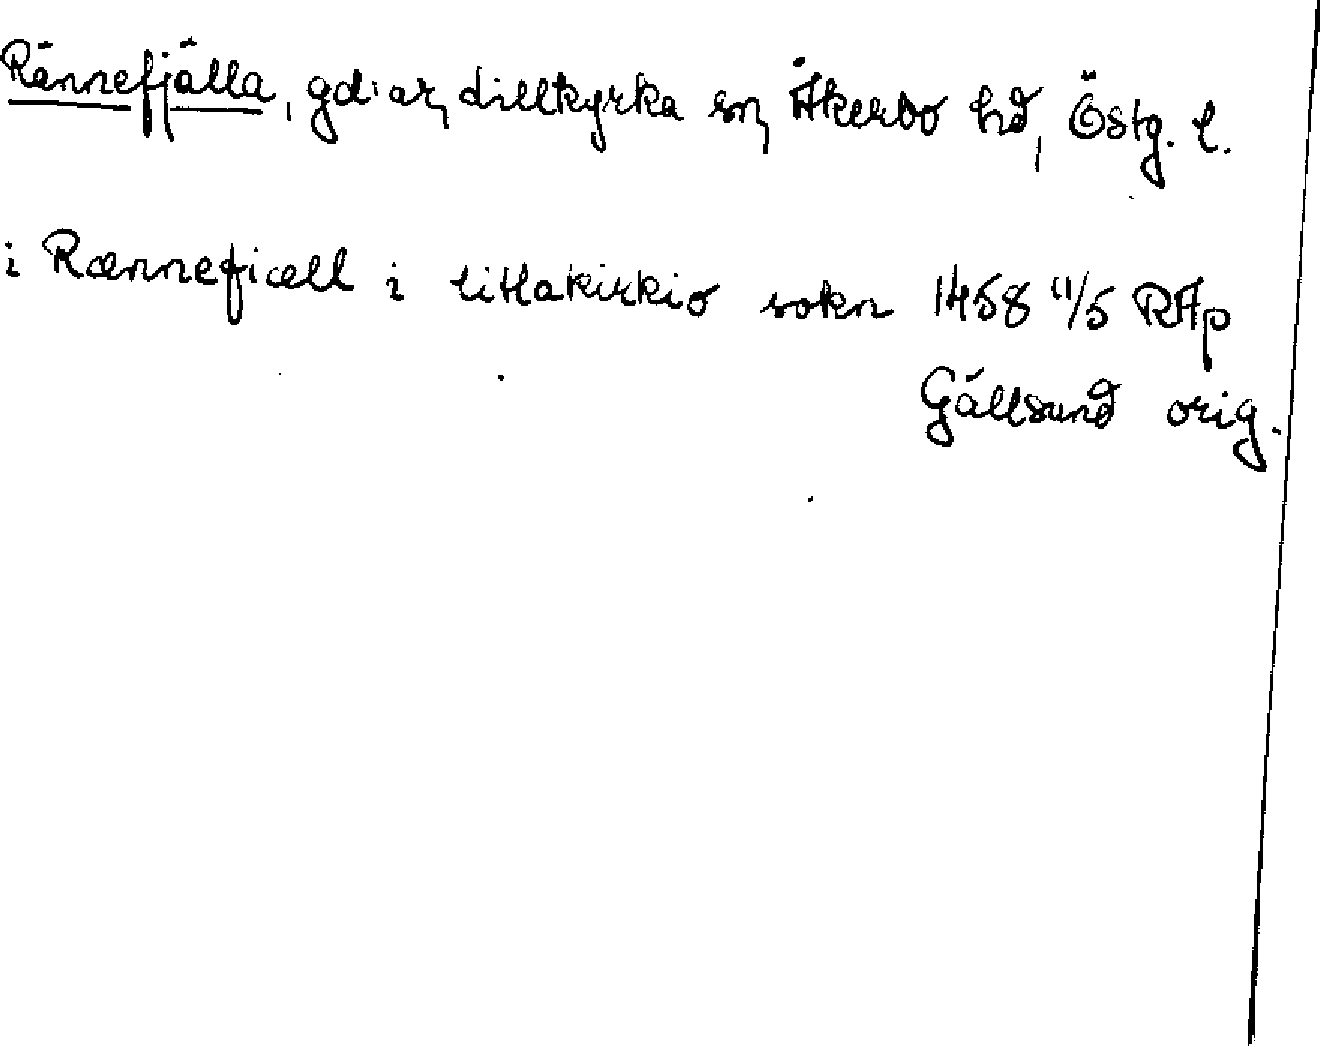 Rännefjälla, gd:ar, Lillkyrka sn, Åkerbo hd, Östg. l.
i Rænnefiæll i litlakirkio sokn 1458 11/5 RAp
Gällsund orig.